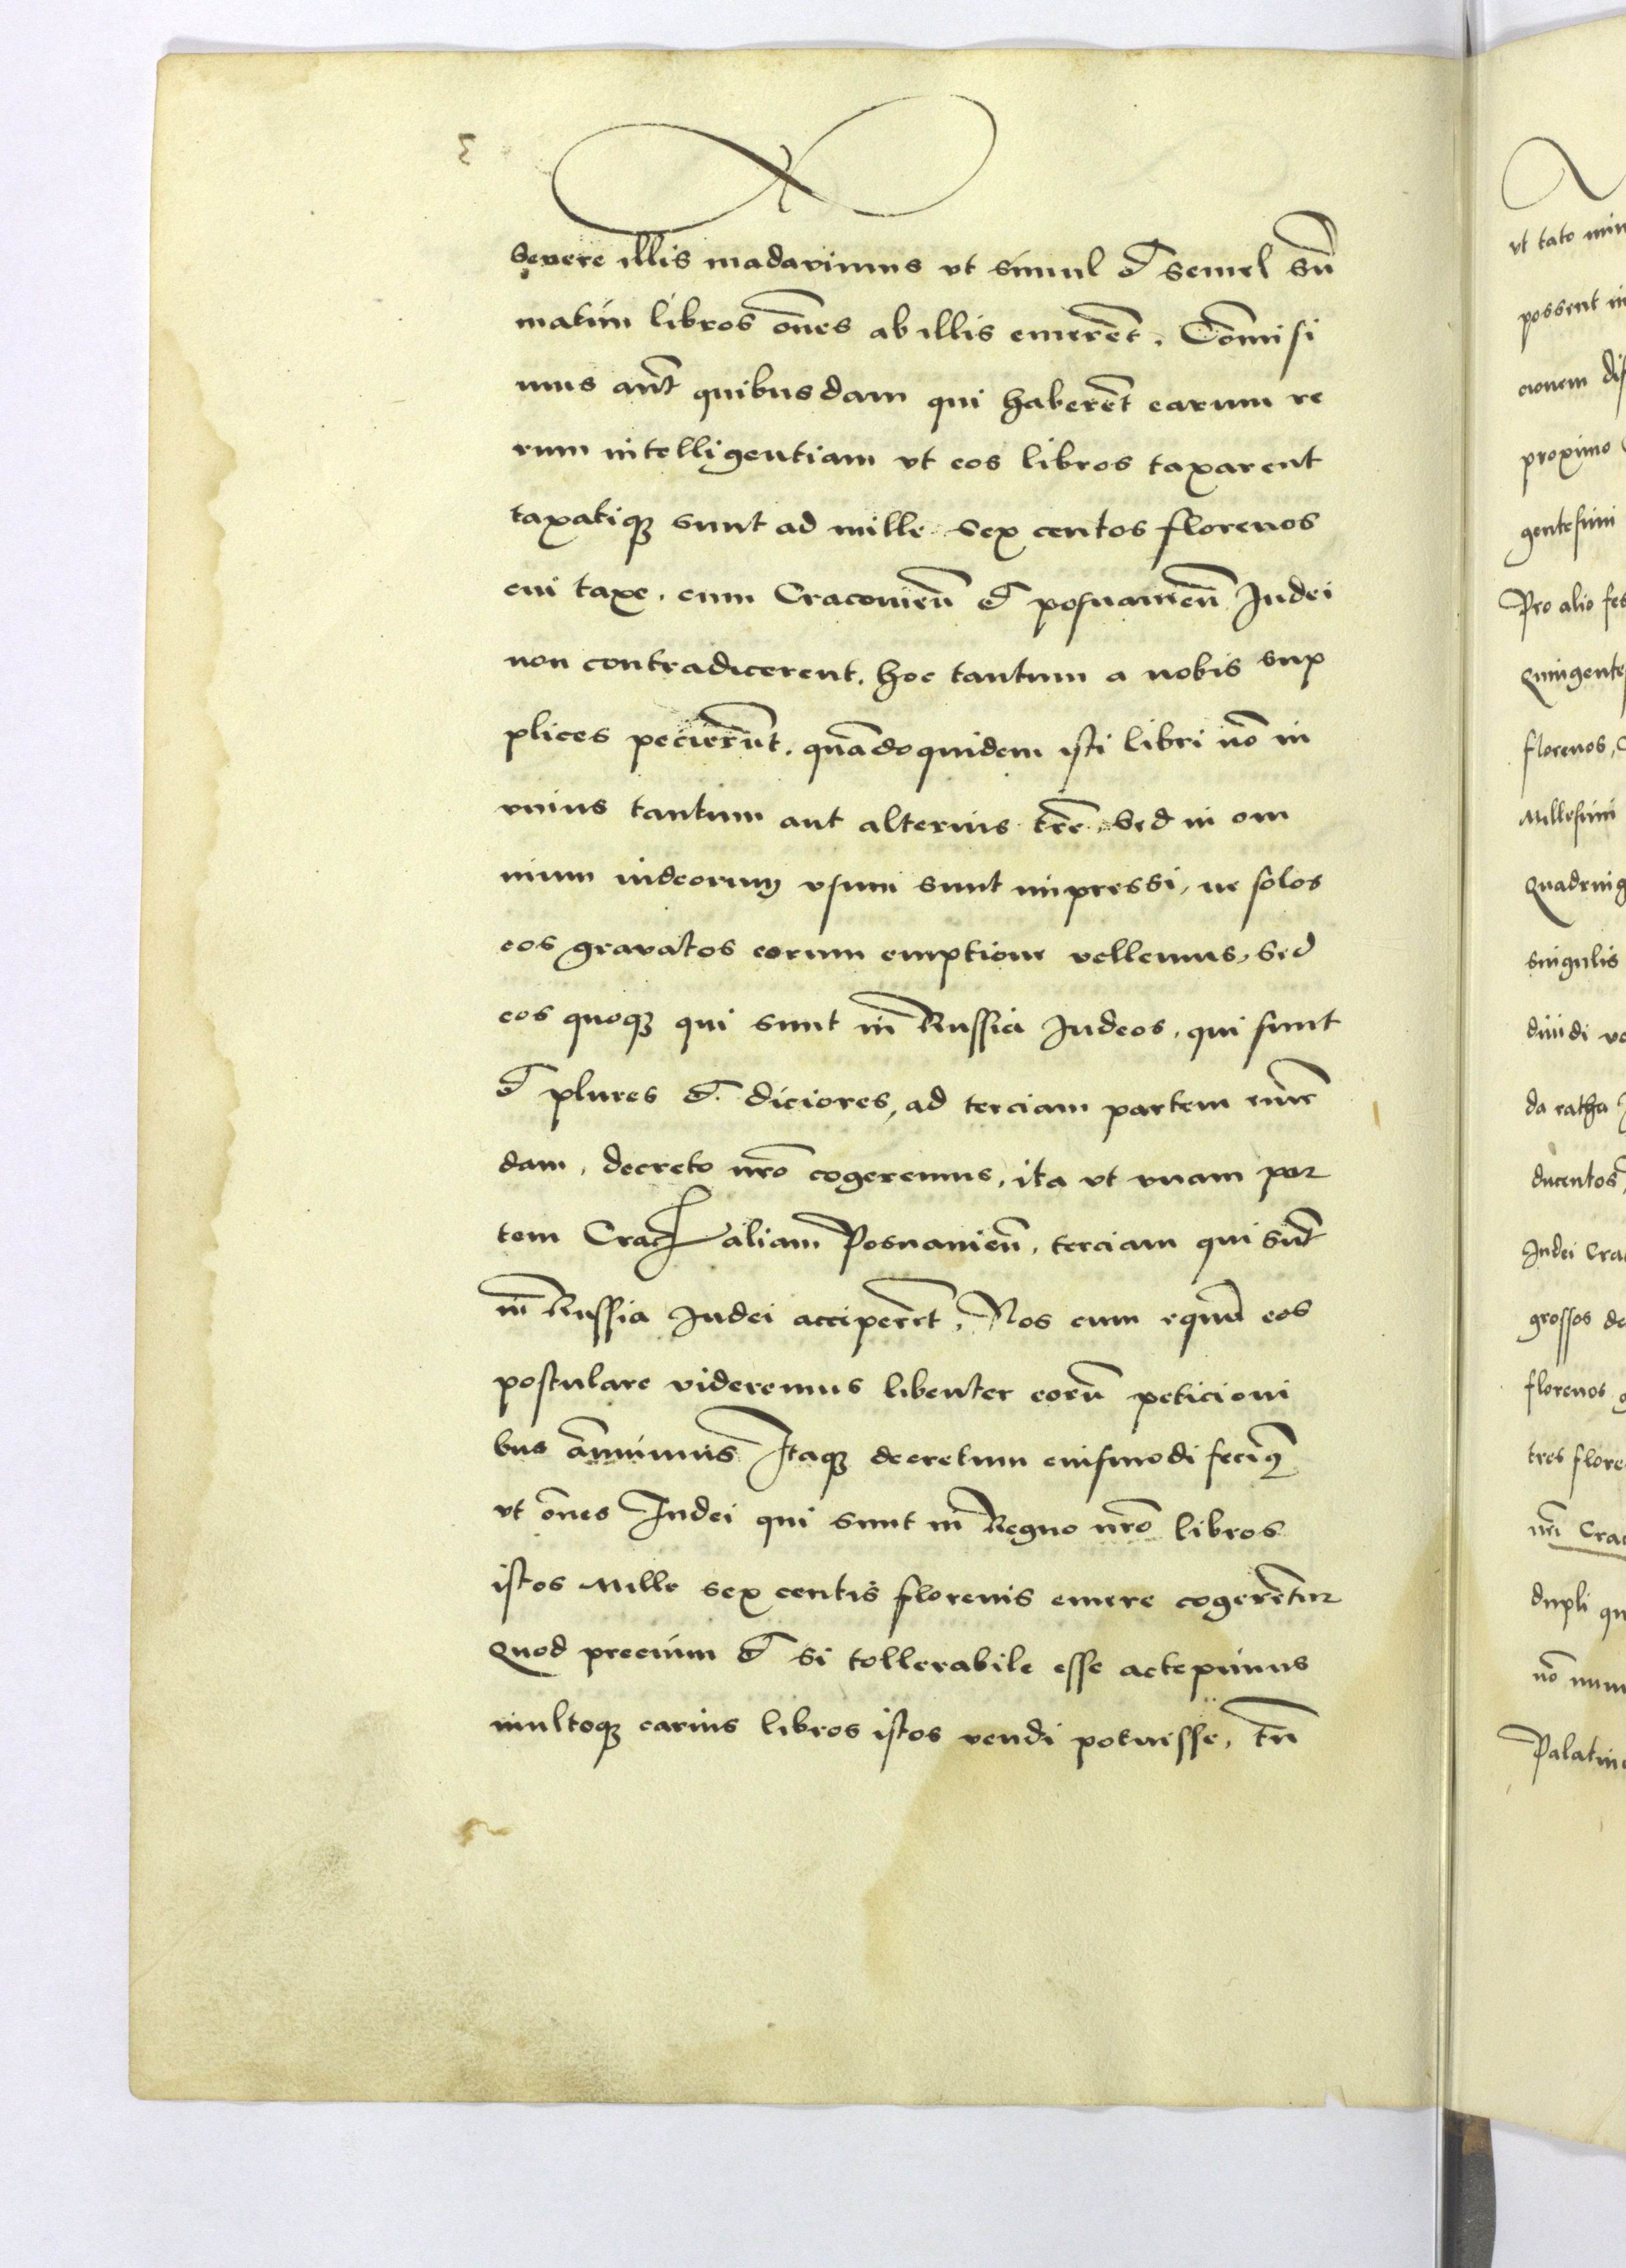 3
severe illis madavimus vt simul et semel sū
matim libros ōnes ab illis emerēt. Cōmisi
mus aūt quibusdam qui haberēt earum re
rum intelligentiam vt eos libros taxarent
taxatiqꝫ sunt ad mille sex centos florenos
cui taxe. cum Cracovieñ et posnanieñ Judei
non contradicerent, hoc tantum a nobis sup
plices pecierūnt. quādoquidem isti libri nō in
vnius tantum aut alterius tr̄e. sed in om
nium iudeorum vsum sunt impressi, ne solos
eos gravatos eorum emptione vellemus, sed
eos quoqꝫ qui sunt in Russia Judeos, qui sunt
et plures et diciores, ad terciam partem emē
dam, decreto nr̄o cogeremus, ita vt vnam par
tem Crac aliam Posnanieñ, terciam qui sūt
in Russia Judei acciperēt, Nos cum equū eos
postulare videremus libenter eorū peticioni
bus ānuimus Itaqꝫ decretum eiusmodi fecimꝰ
vt ōnes Judei qui sunt in Regno nr̄o libros
istos Mille sex centis florenis emere cogerētur
Quod precium et si tollerabile esse accepimus
multoqꝫ carius libros istos vendi potuisse, tn̄
vt tato
possent in
cionem
proximo
gentesimi
Pro alio
florenos,
Millesimi
singulis
dividi
da ratha
ducentos,
Judei Crac
grossos de
florenos
tres flore
dupli
nō num
Palatin